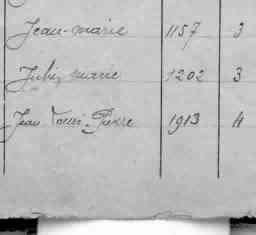 Jean-marie 1157 3
Julie, marie 1202 3
Jean Louis-Pierre 1913 4